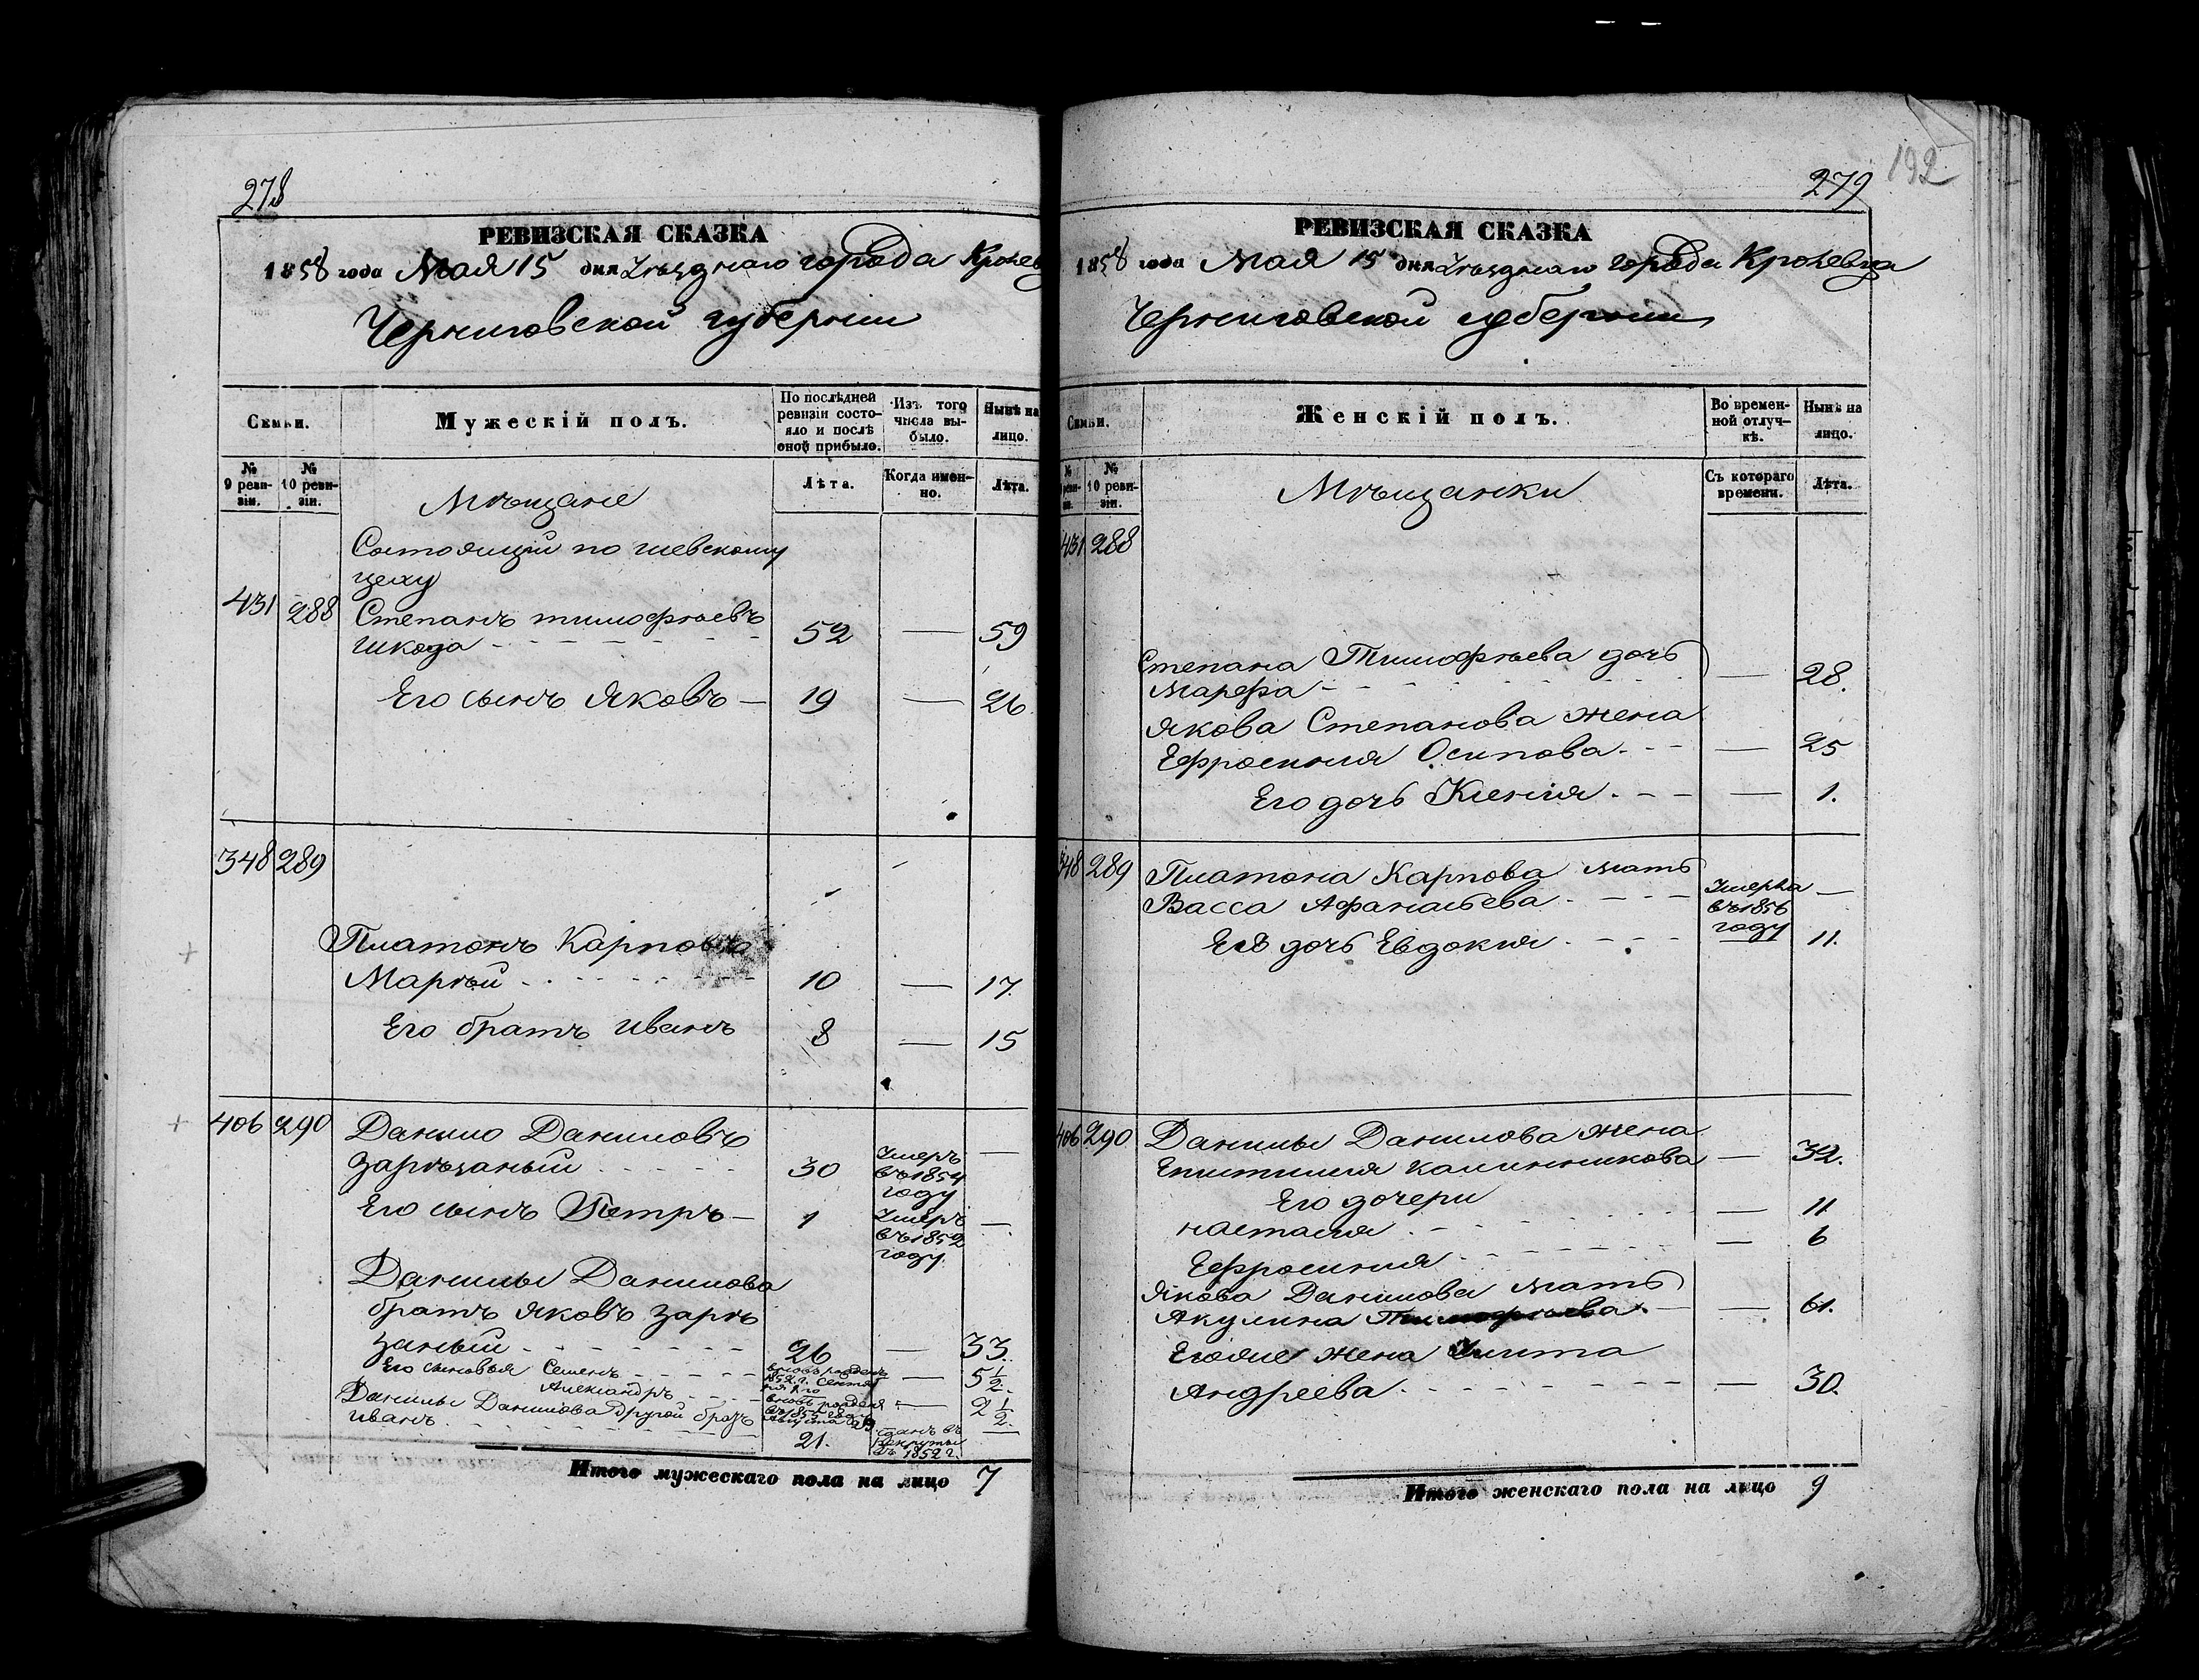 278
РЕВИЗСКАЯ СКАЗКА
1858 года Мая 15 дня Уѣзднаго города Кролев
Черниговской губернии
Семьи.
Мужескій полъ.
По послѣдней ревизіи состояло и послѣ оной прибыло.
Изъ того числа выбыло.
Нынѣ на лицо.
№ 9 ревизіи.
№ 10 ревизіи.
Лѣта.
Когда именно.
Лѣта.
Мѣщане
Состоящій по шевскому
цеху
431 288 Степанъ тимофѣевъ
Шкода 52 — 59
Его сынъ Яковъ — 19 — 26
348 289
Платонъ Карповъ
Маргый 10 — 17.
Его братъ Иванъ 8 — 15
406 290 Данило Даниловъ
Зарѣзаный 30 Умеръ въ 1854 году —
Его сынъ Петръ — 1 Умеръ въ 1852 году —
Данилы Данилова
братъ Яковъ Зарѣ
заный 26 — 33.
Его сыновья Семенъ вновь рожденъ 1852 г. — 5 1/2.
Александръ вновь рожденъ въ 1855 Августа 29 — 2 1/2.
Данилы Данилова другой братъ
Иванъ 21. Сданъ въ Рекруты въ 1852 г. —
Итого мужескаго пола на лицо 7
192
279
РЕВИЗСКАЯ СКАЗКА
1858 года Мая 15 дня Уѣзднаго города Кролевца
Черниговской губернии
Семьи.
Женскій полъ.
Во временной отлучкѣ.
Нынѣ на лицо.
№ 10 ревизіи.
Съ котораго времени.
Лѣта.
Мѣщанки
431 288
Степана Тимофѣева дочь
Марфа — 28.
Якова Степанова жена
Ефросиния Осипова — 25
Его дочь Ксения — 1.
348 289 Платона Карпова мать
Васса Афанасьева Умерла въ 1856 году —
Ея дочь Евдокия — 11.
406 290 Данилы Данилова жена
Епистимия Калинникова — 32.
Его дочери
настасия — 11
Ефросиния — 6
Якова Данилова мать
Акулина Тимофѣева — 61.
Егоже жена Улита
Андреева — 30.
Итого женскаго пола на лицо 9